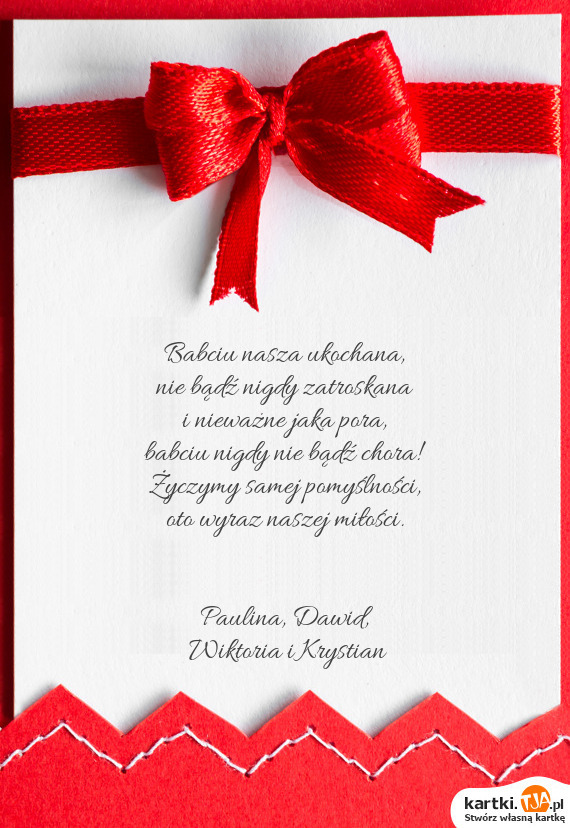 Babciu nasza ukochana,
nie bądź nigdy zatroskana
i nieważne jaka pora,
babciu nigdy nie bądź chora!
Życzymy samej pomyślności,
oto wyraz naszej miłości.
Paulina, Dawid,
Wiktoria i Krystian
kartki.TJA.pl
Stwórz własną kartkę